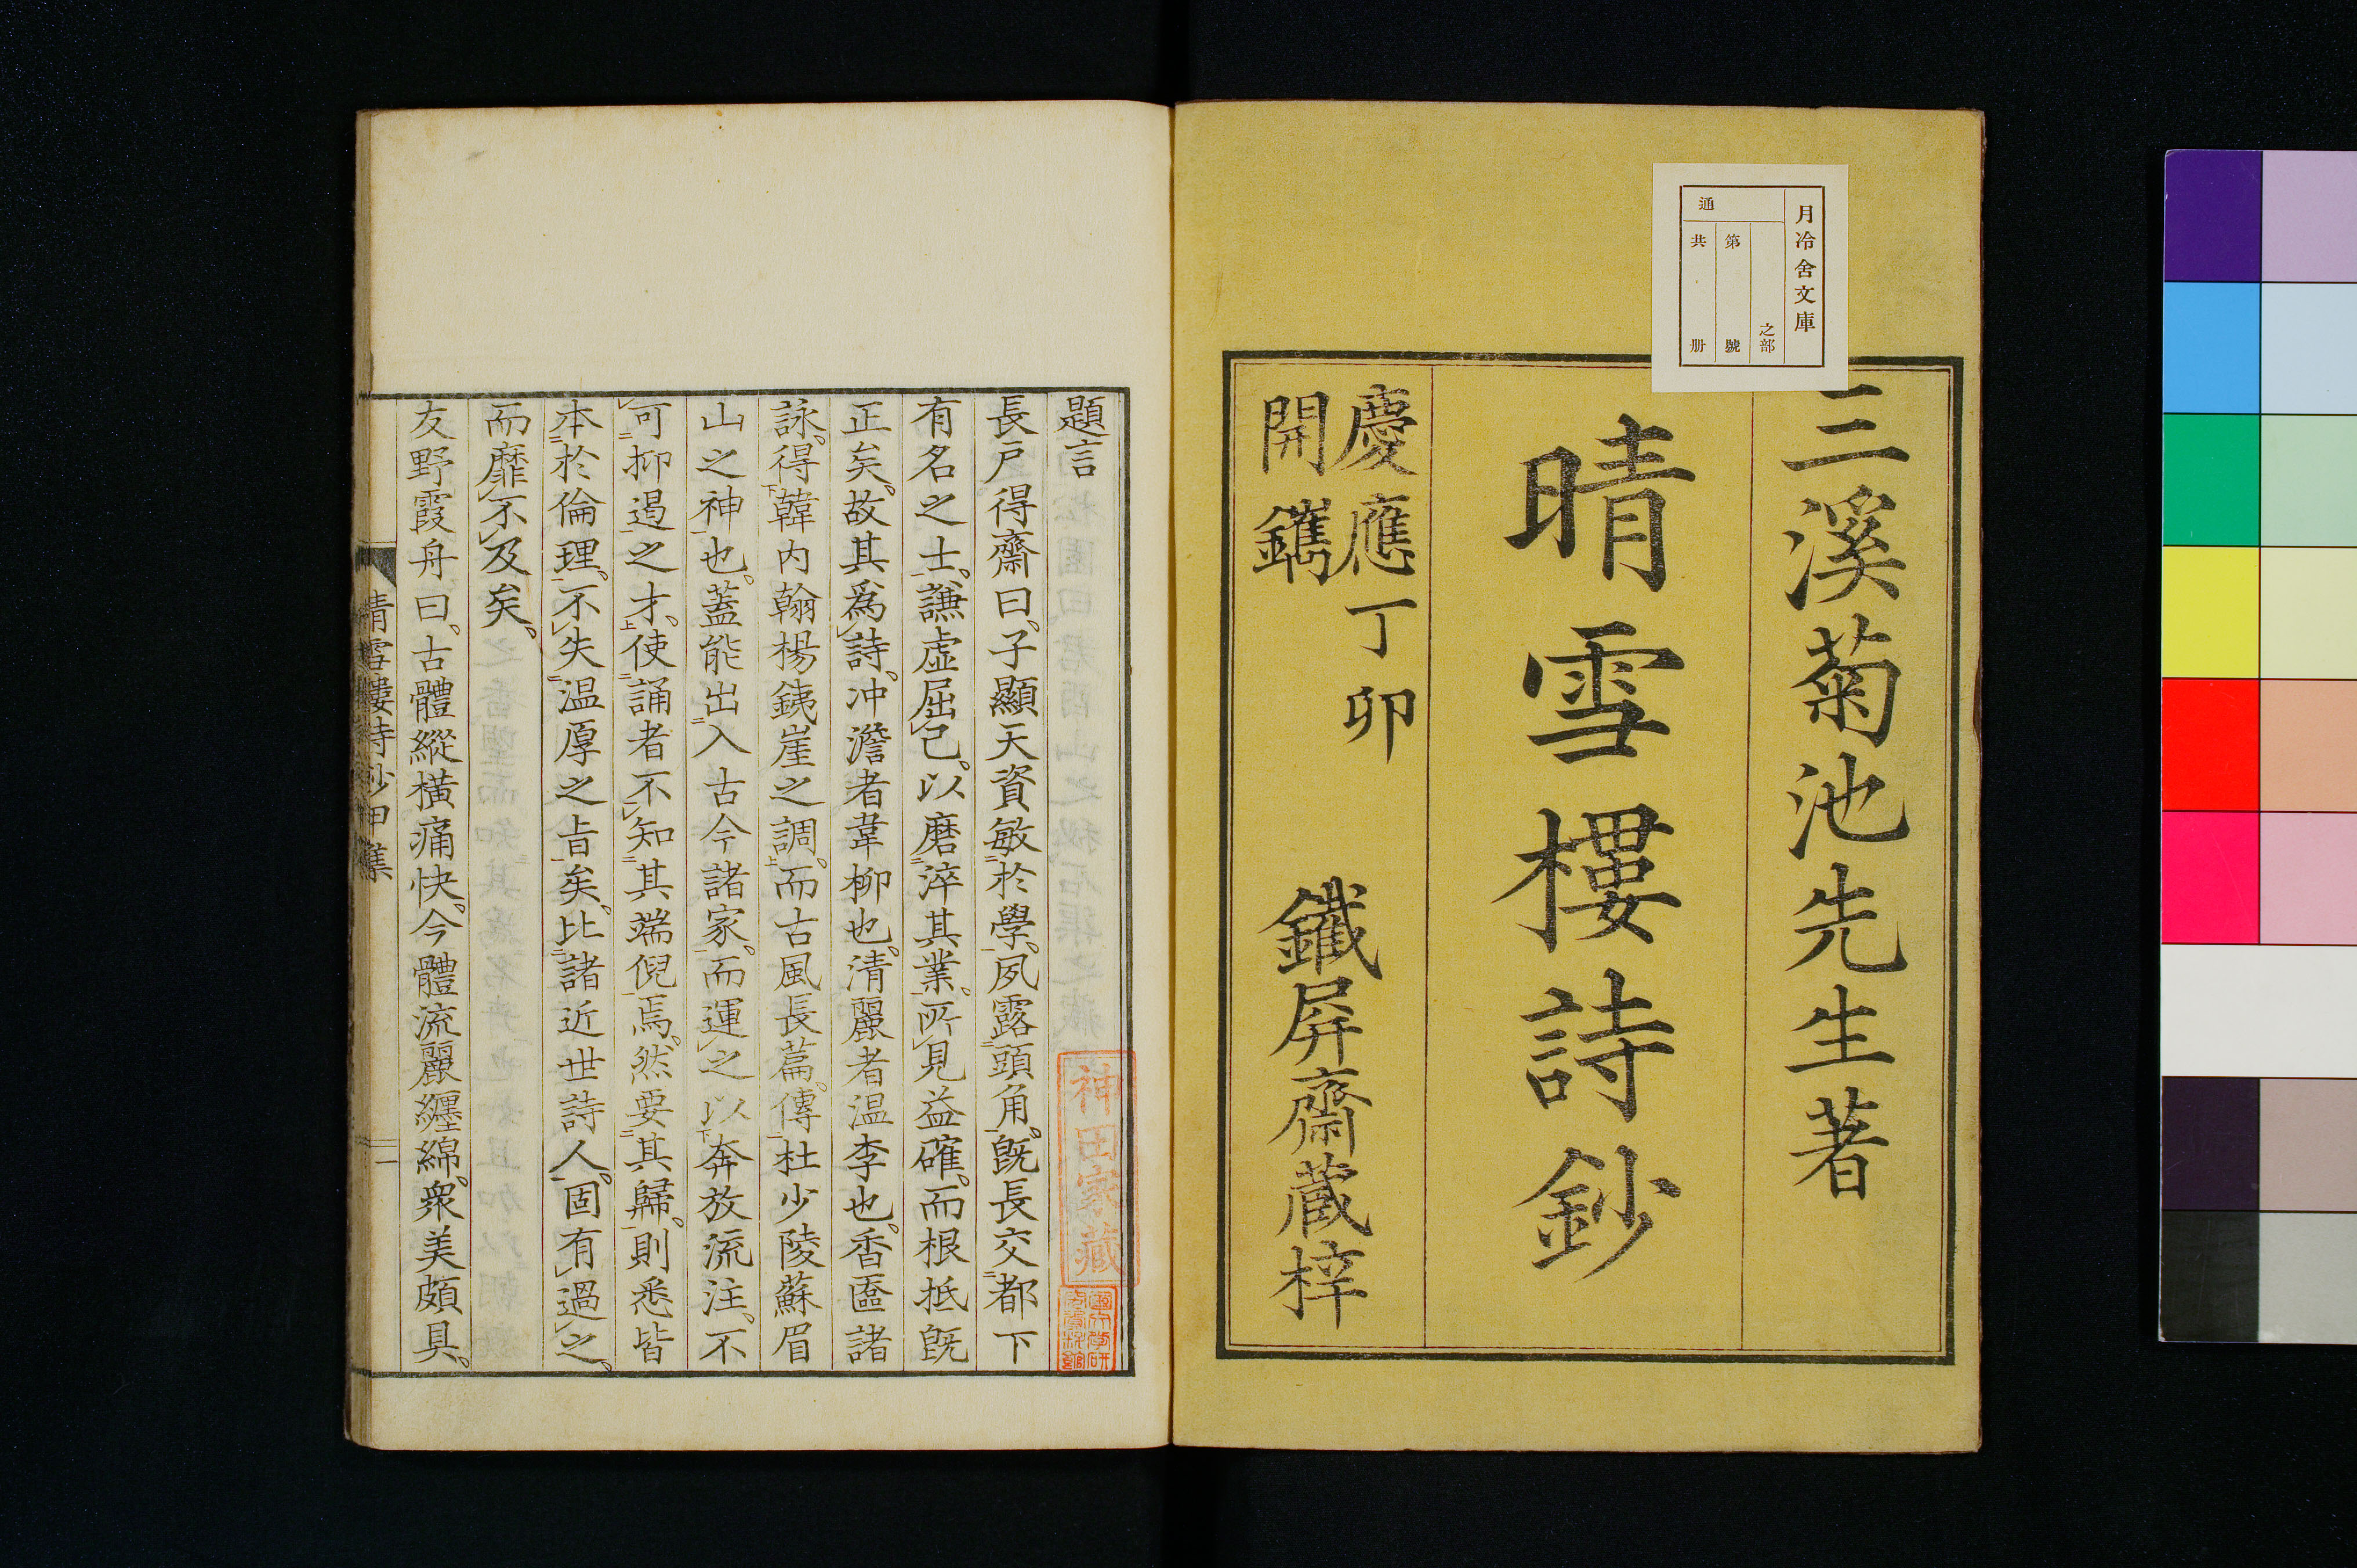 月冷舍文庫
之部
第 號
通
共 册
三溪菊池先生著
晴雪樓詩鈔
慶應丁卯
開鐫
鐵屛齋蔵梓
題言
長戸得齋曰。子顯天資敏於學。夙露頭角。旣長交都下
有名之士。謙虛屈己。以磨淬其業。所見益確。而根抵旣
正矣。故其爲詩。冲澹者韋柳也。清麗者温李也。香匳諸
詠。得韓内翰楊銕崖之調。而古風長篇。傳杜少陵蘇眉
山之神也。蓋能出入古今諸家。而運之以奔放流注。不
可抑遏之才。使誦者不知其端倪焉。然要其歸。則悉皆
本於倫理。不失温厚之旨矣。比諸近世詩人。固有過之。
而靡不及矣。
友野霞舟曰。古體縱横痛快。今體流麗纒綿。衆美頗具。
晴雪樓詩鈔甲集
一
神田家藏